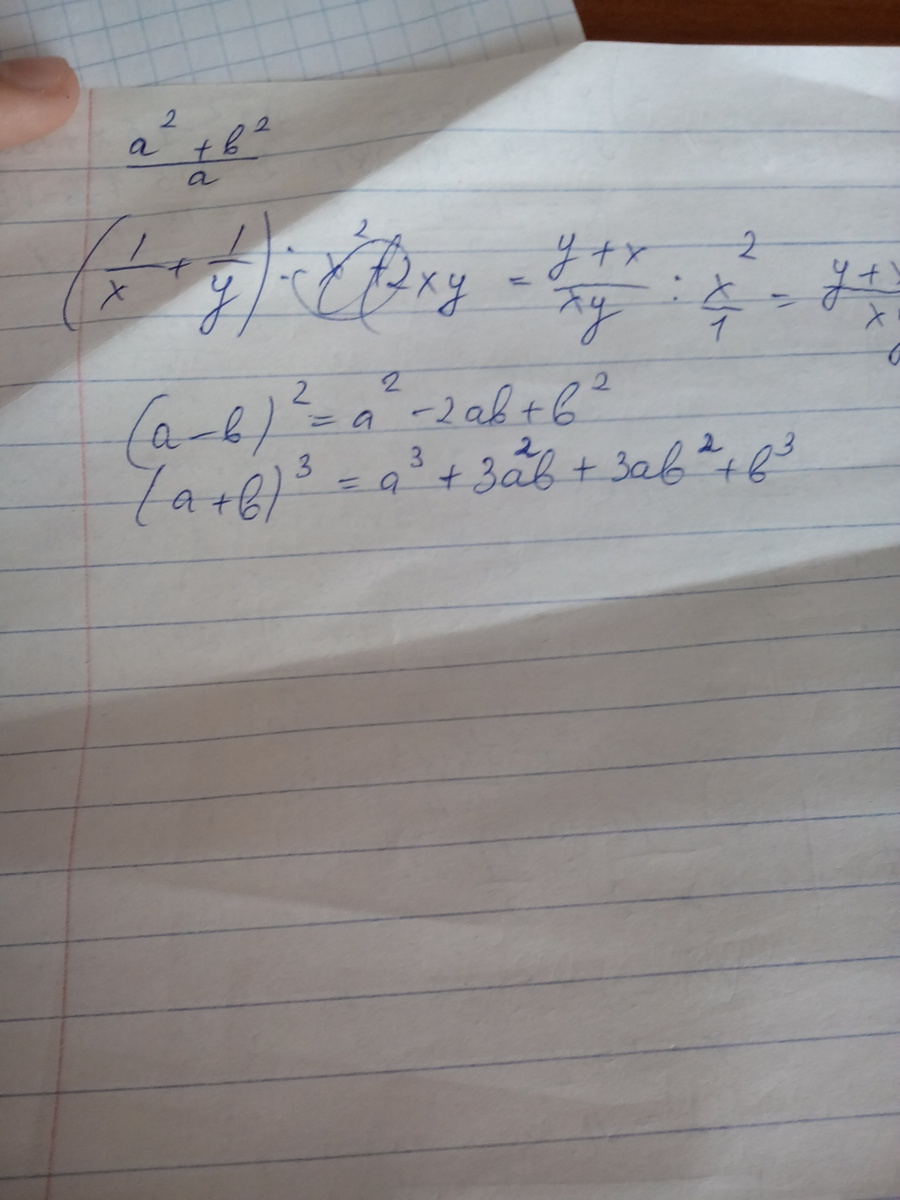 a² + b²
a
(1/x + 1/y) : x² 2xy = (y + x)/(xy) : x²/1 = y +
(a - b)² = a² - 2ab + b²
(a + b)³ = a³ + 3a²b + 3ab² + b³